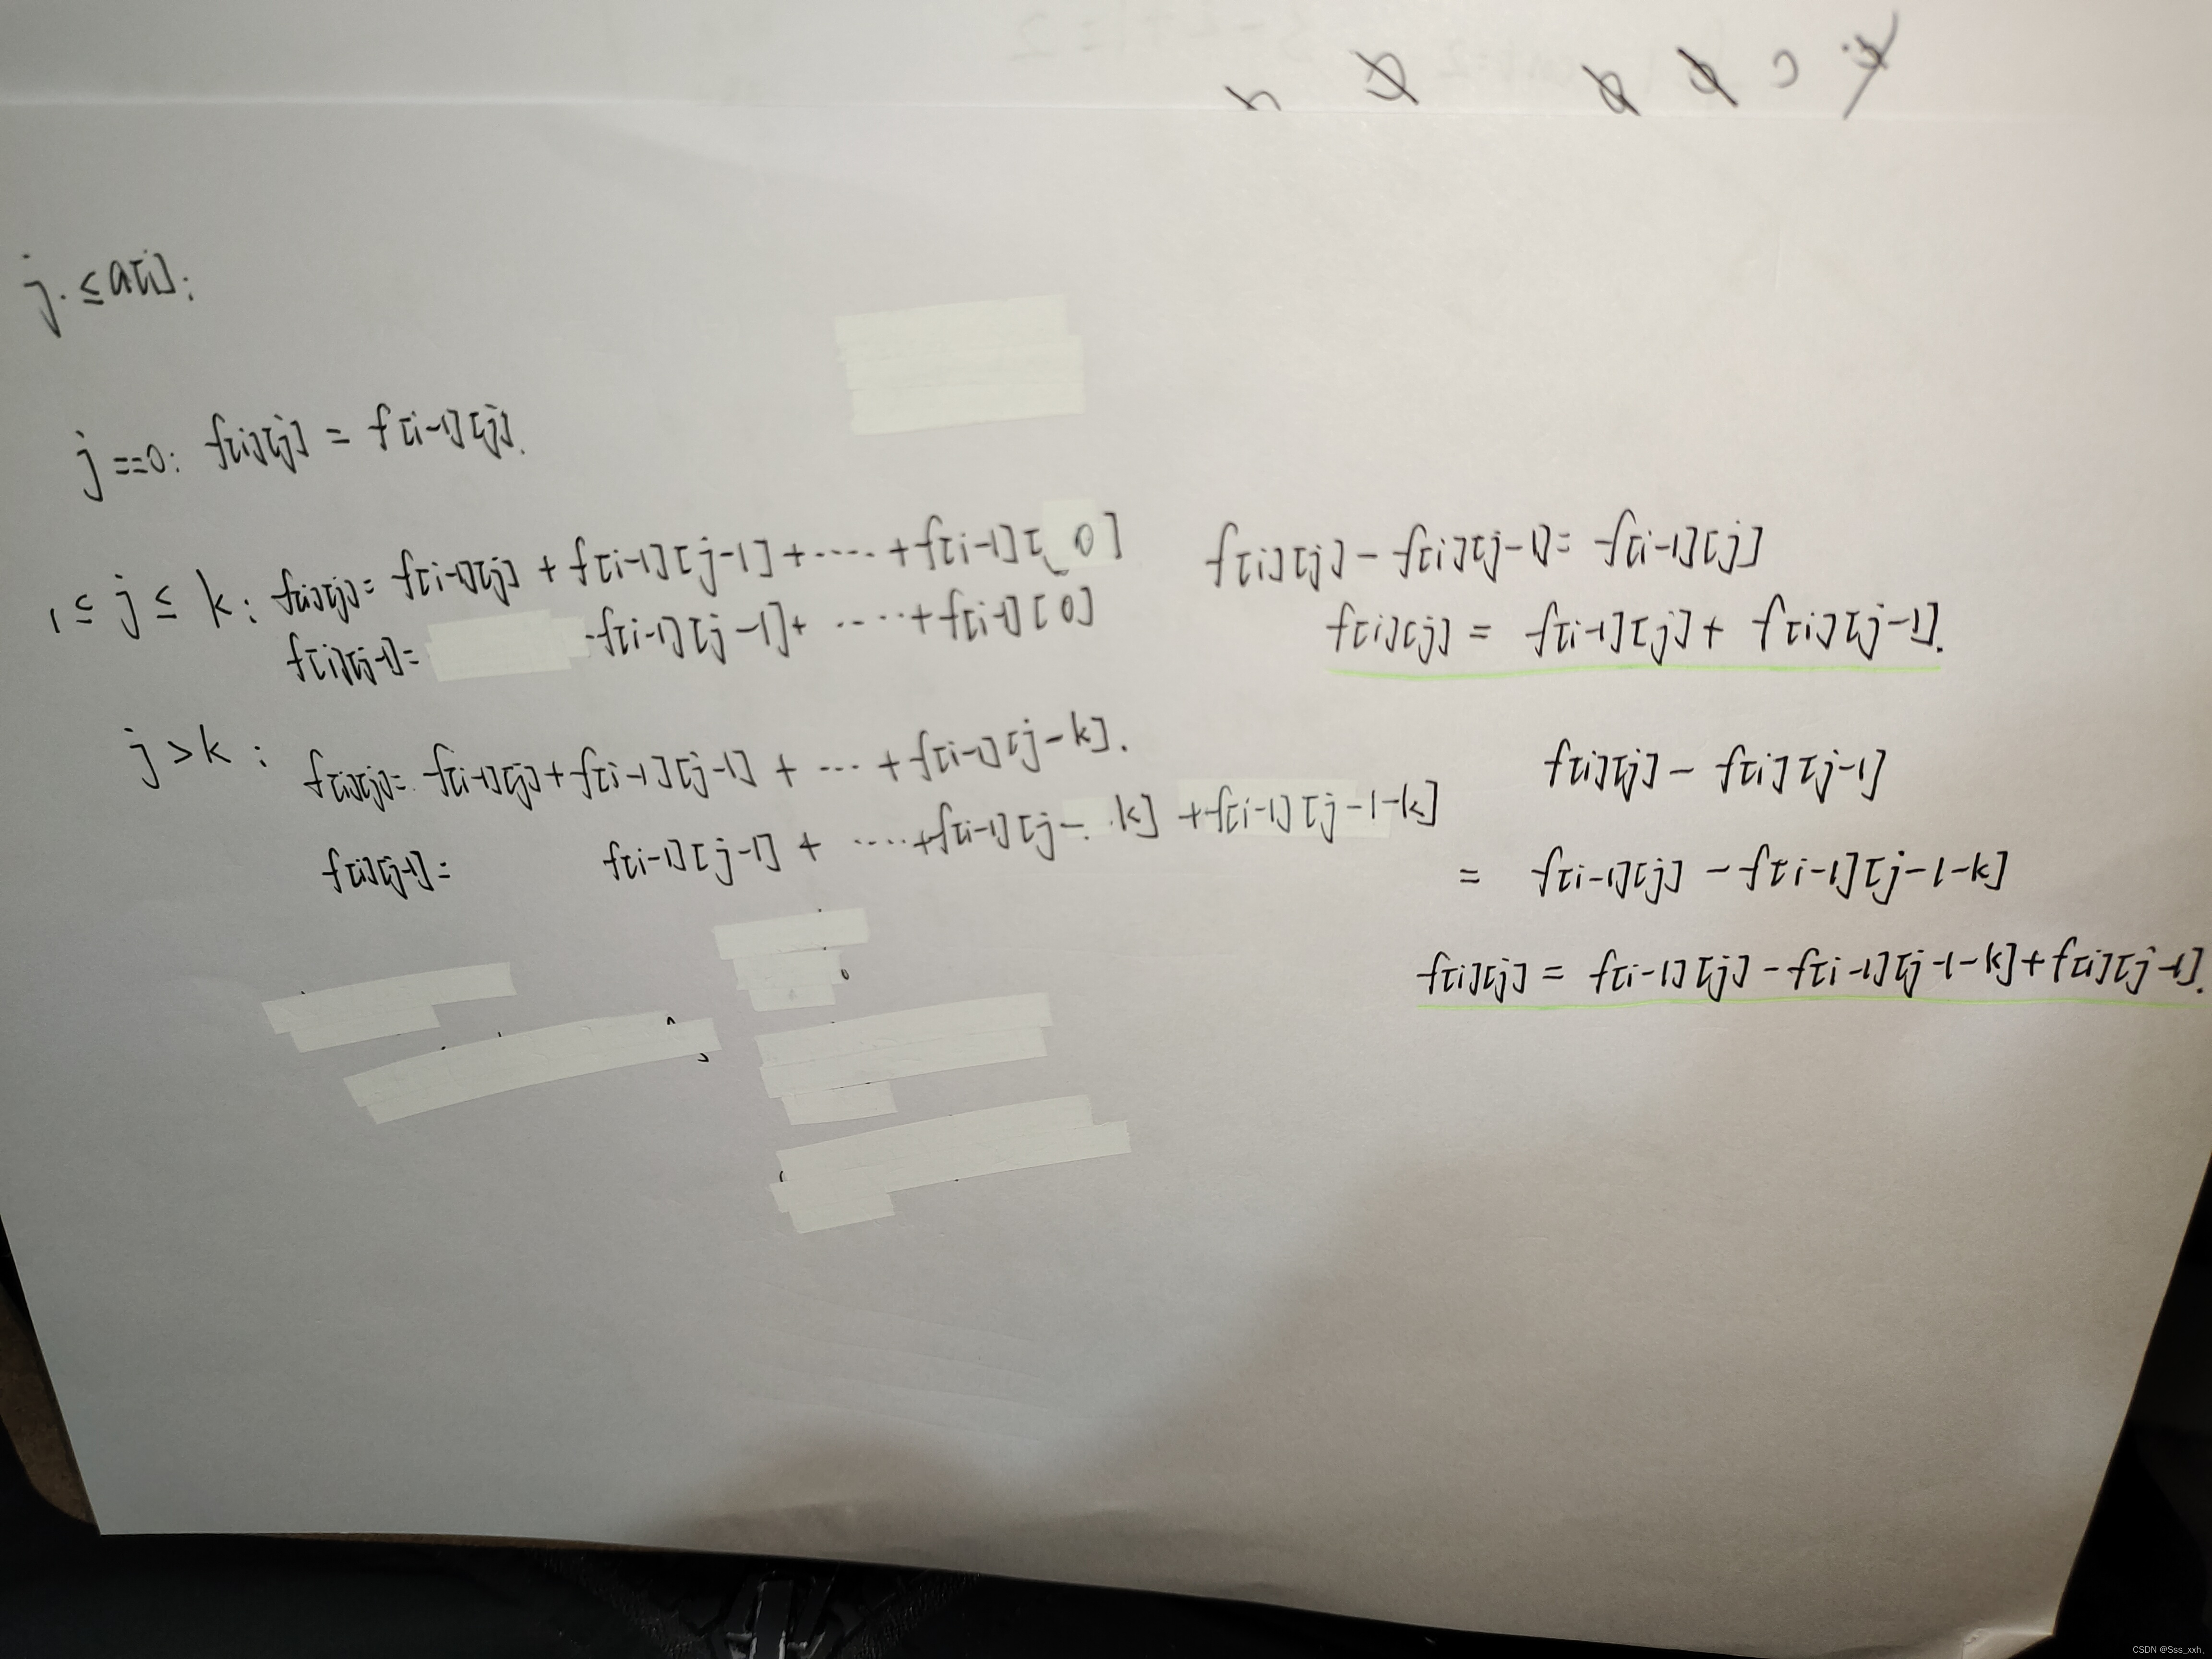 j ≤ a[i]:
j==0: f[i][j] = f[i-1][j].
1 ≤ j ≤ k: f[i][j] = f[i-1][j] + f[i-1][j-1] + ····· + f[i-1][0]
f[i][j-1] = f[i-1][j-1] + ····· + f[i-1][0]
f[i][j] - f[i][j-1] = f[i-1][j]
f[i][j] = f[i-1][j] + f[i][j-1].
j > k: f[i][j] = f[i-1][j] + f[i-1][j-1] + ··· + f[i-1][j-k].
f[i][j-1] = f[i-1][j-1] + ····· + f[i-1][j-k] + f[i-1][j-1-k]
f[i][j] - f[i][j-1]
= f[i-1][j] - f[i-1][j-1-k]
f[i][j] = f[i-1][j] - f[i-1][j-1-k] + f[i][j-1].
CSDN @Sss_xxh